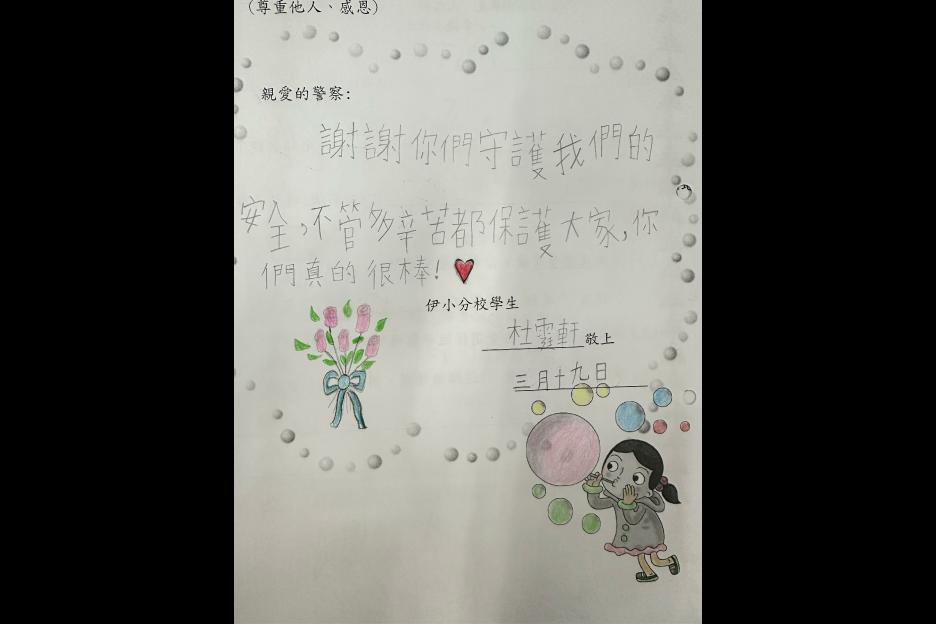 (尊重他人、感恩)
親愛的警察:
謝謝你們守護我們的
安全,不管多辛苦都保護大家,你
們真的很棒!
伊小分校學生
杜霏軒敬上
三月十九日